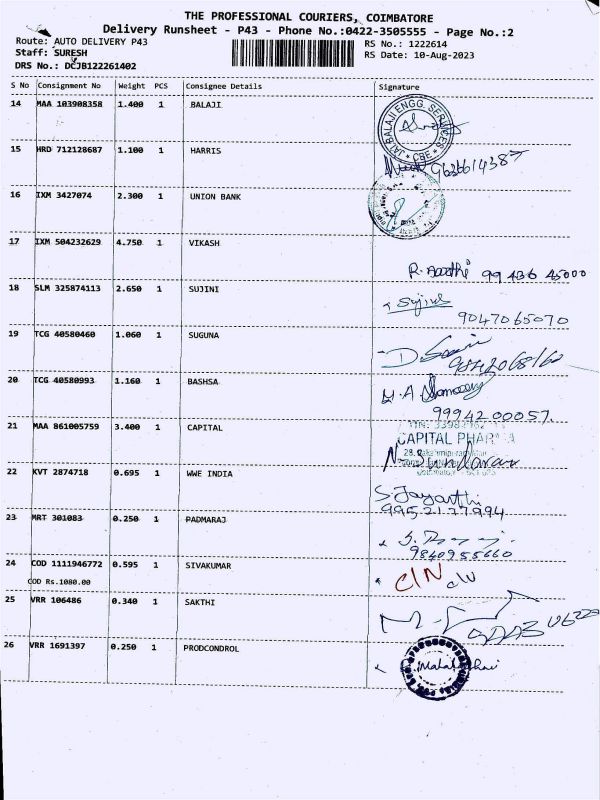 THE PROFESSIONAL COURIERS, COIMBATORE
Delivery Runsheet - P43 - Phone No.:0422-3505555 - Page No.:2
Route: AUTO DELIVERY P43
RS No.: 1222614
Staff: SURESH
RS Date: 10-Aug-2023
DRS No.: DCJB122261402
S No Consignment No Weight PCS Consignee Details Signature
14 MAA 103908358 1.400 1 BALAJI
JAI BALAJI ENGG. SERVICES * CBE *
15 HRD 712128687 1.100 1 HARRIS
9636614387
16 IXM 3427074 2.300 1 UNION BANK
17 IXM 504232629 4.750 1 VIKASH
99436 45000
18 SLM 325874113 2.650 1 SUJINI
Sujini
9047065070
19 TCG 40580460 1.060 1 SUGUNA
20 TCG 40580993 1.160 1 BASHSA
9994200057
21 MAA 861005759 3.400 1 CAPITAL
CAPITAL PHAR
22 KVT 2874718 0.695 1 WWE INDIA
S. Jayanthi
9952177994
23 MRT 301083 0.250 1 PADMARAJ
9840955660
24 COD 1111946772 0.595 1 SIVAKUMAR
COD Rs.1080.00
C/N
25 VRR 106486 0.340 1 SAKTHI
26 VRR 1691397 0.250 1 PRODCONDROL